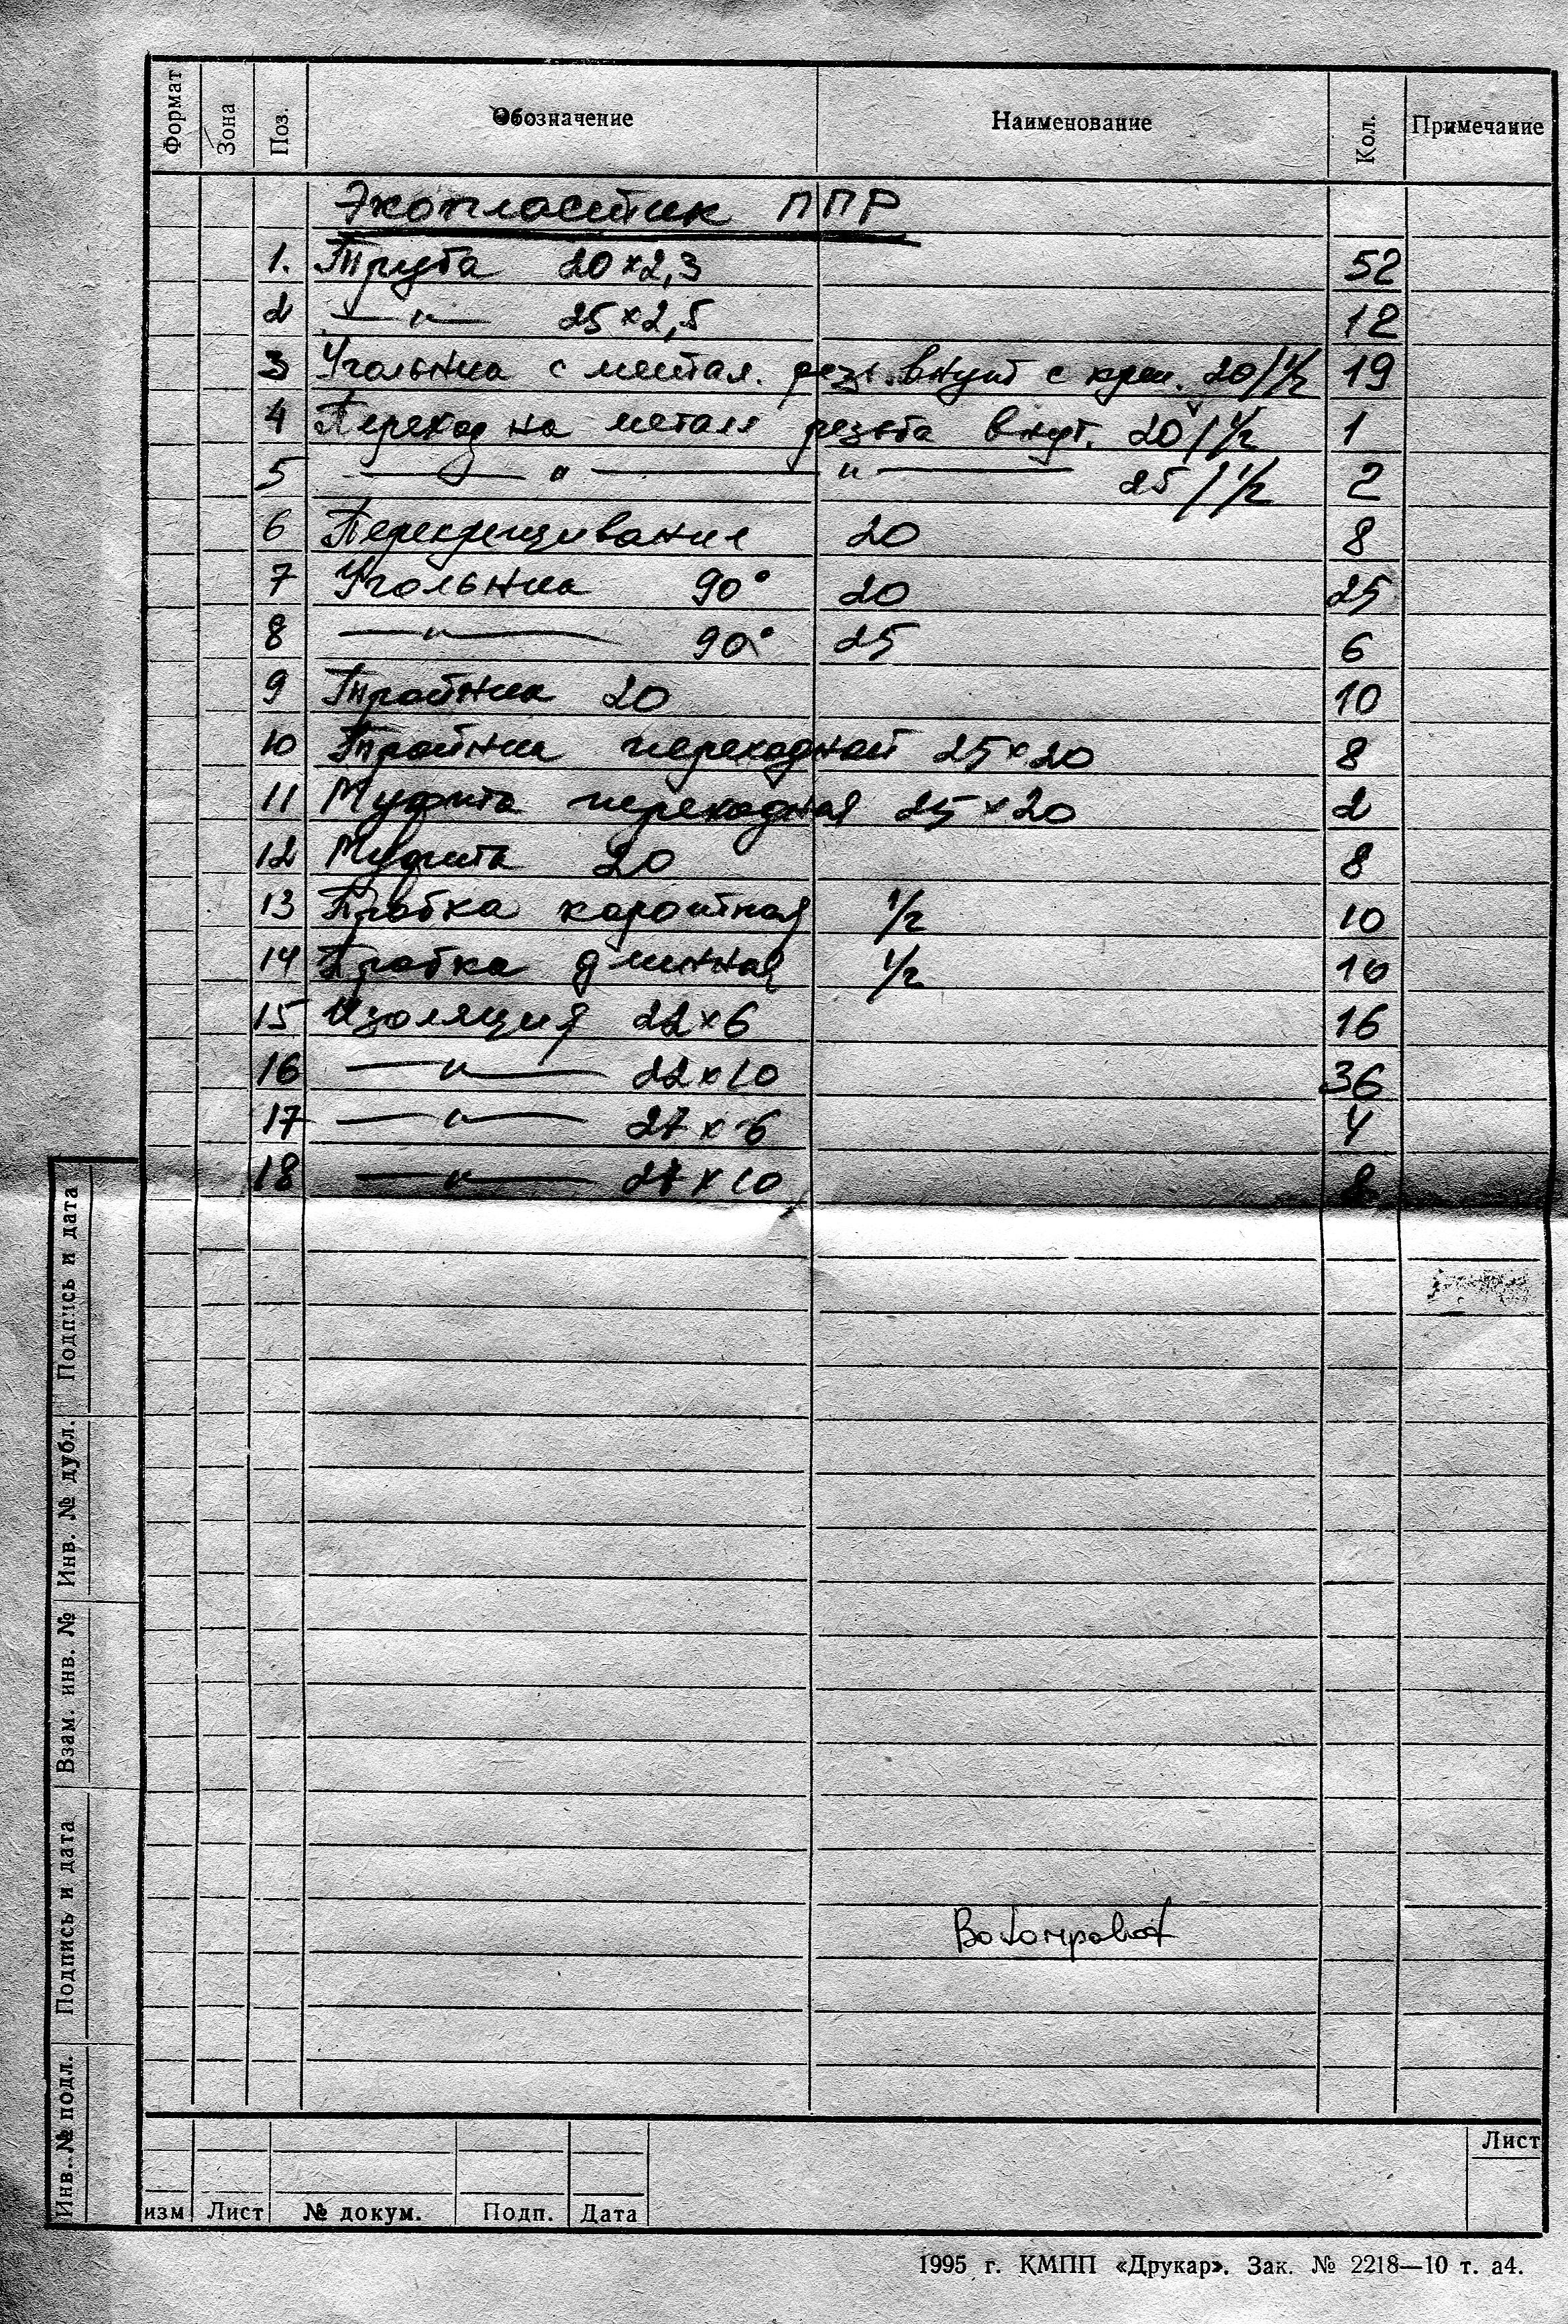 Формат Зона Поз. Обозначение Наименование Кол. Примечание
Экопластик ППР
1. Труба 20×2,3 52
2 —"— 25×2,5 12
3 Угольник с метал. резь. внут с креп. 20/½ 19
4 Переход на метал резьба внут. 20/½ 1
5 —"— —"— 25/½ 2
6 Перекрещивание 20 8
7 Угольник 90° 20 25
8 —"— 90° 25 6
9 Тройник 20 10
10 Тройник переходной 25×20 8
11 Муфта переходная 25×20 2
12 Муфта 20 8
13 Пробка коротная ½ 10
14 Пробка длинная ½ 10
15 Изоляция 22×6 16
16 —"— 22×10 36
17 —"— 27×6 4
18 —"— 27×10 8
Подпись и дата
Инв. № дубл.
Взам. инв. №
Подпись и дата
Инв. № подл.
Лист
изм Лист № докум. Подп. Дата
1995 г. КМПП «Друкар». Зак. № 2218—10 т. а4.